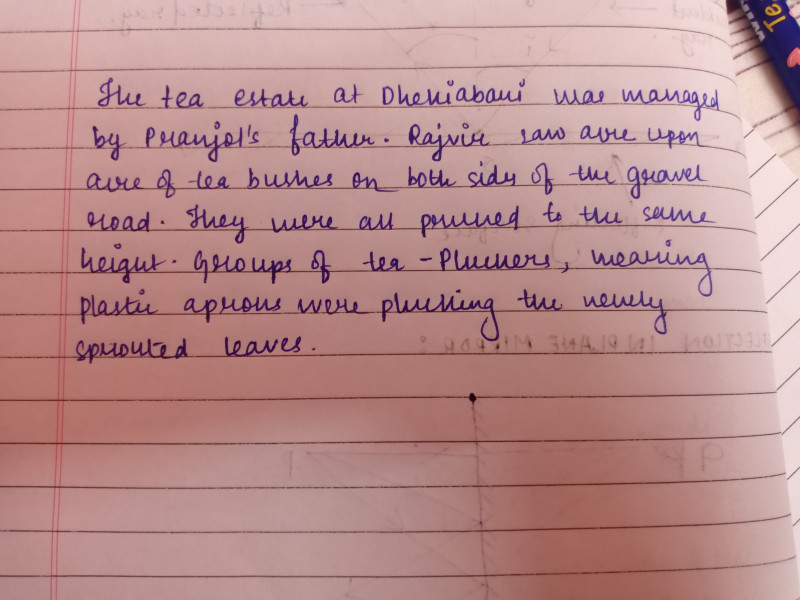 The tea estate at Dhekiabari was managed
by Pranjol's father. Rajvir saw acre upon
acre of tea bushes on both sides of the gravel
road. They were all pruned to the same
height. Groups of tea - Pluckers, wearing
plastic aprons were plucking the newly
sprouted leaves.